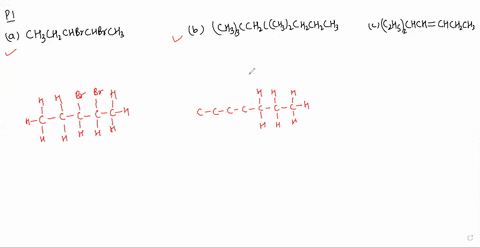 P1
(a) CH3CH2CHBrCHBrCH3 (b) (CH3)3CCH2C(CH3)2CH2CH2CH3 (c) (C2H5)2CHCH=CHCH2CH3
H H Br Br H
H-C-C-C-C-C-H
H H H H H
H H H
C-C-C-C-C-C-C-H
H H H